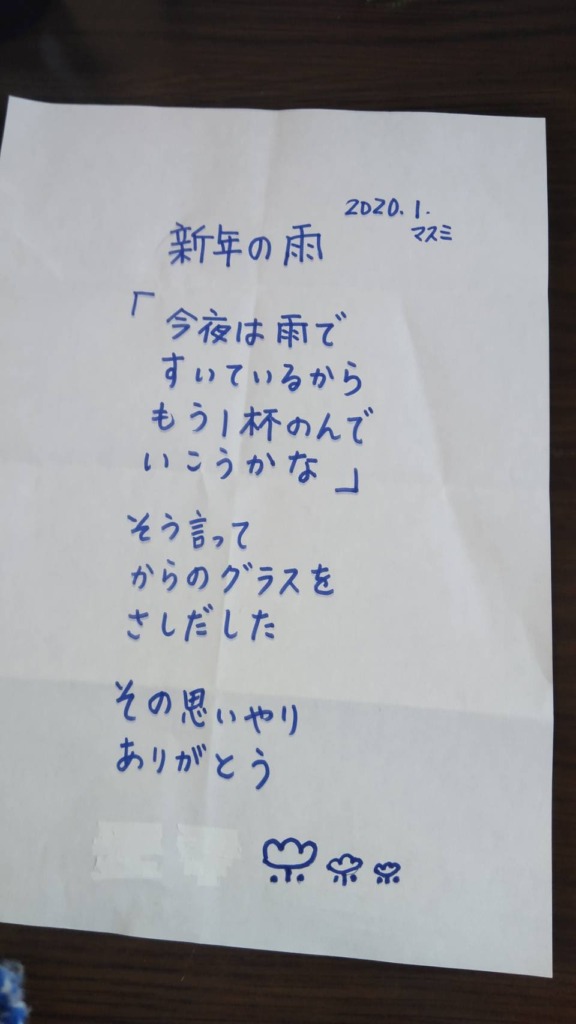 2020.1.
マスミ
新年の雨
「今夜は雨で
すいているから
もう1杯のんで
いこうかな」
そう言って
からのグラスを
さしだした
その思いやり
ありがとう